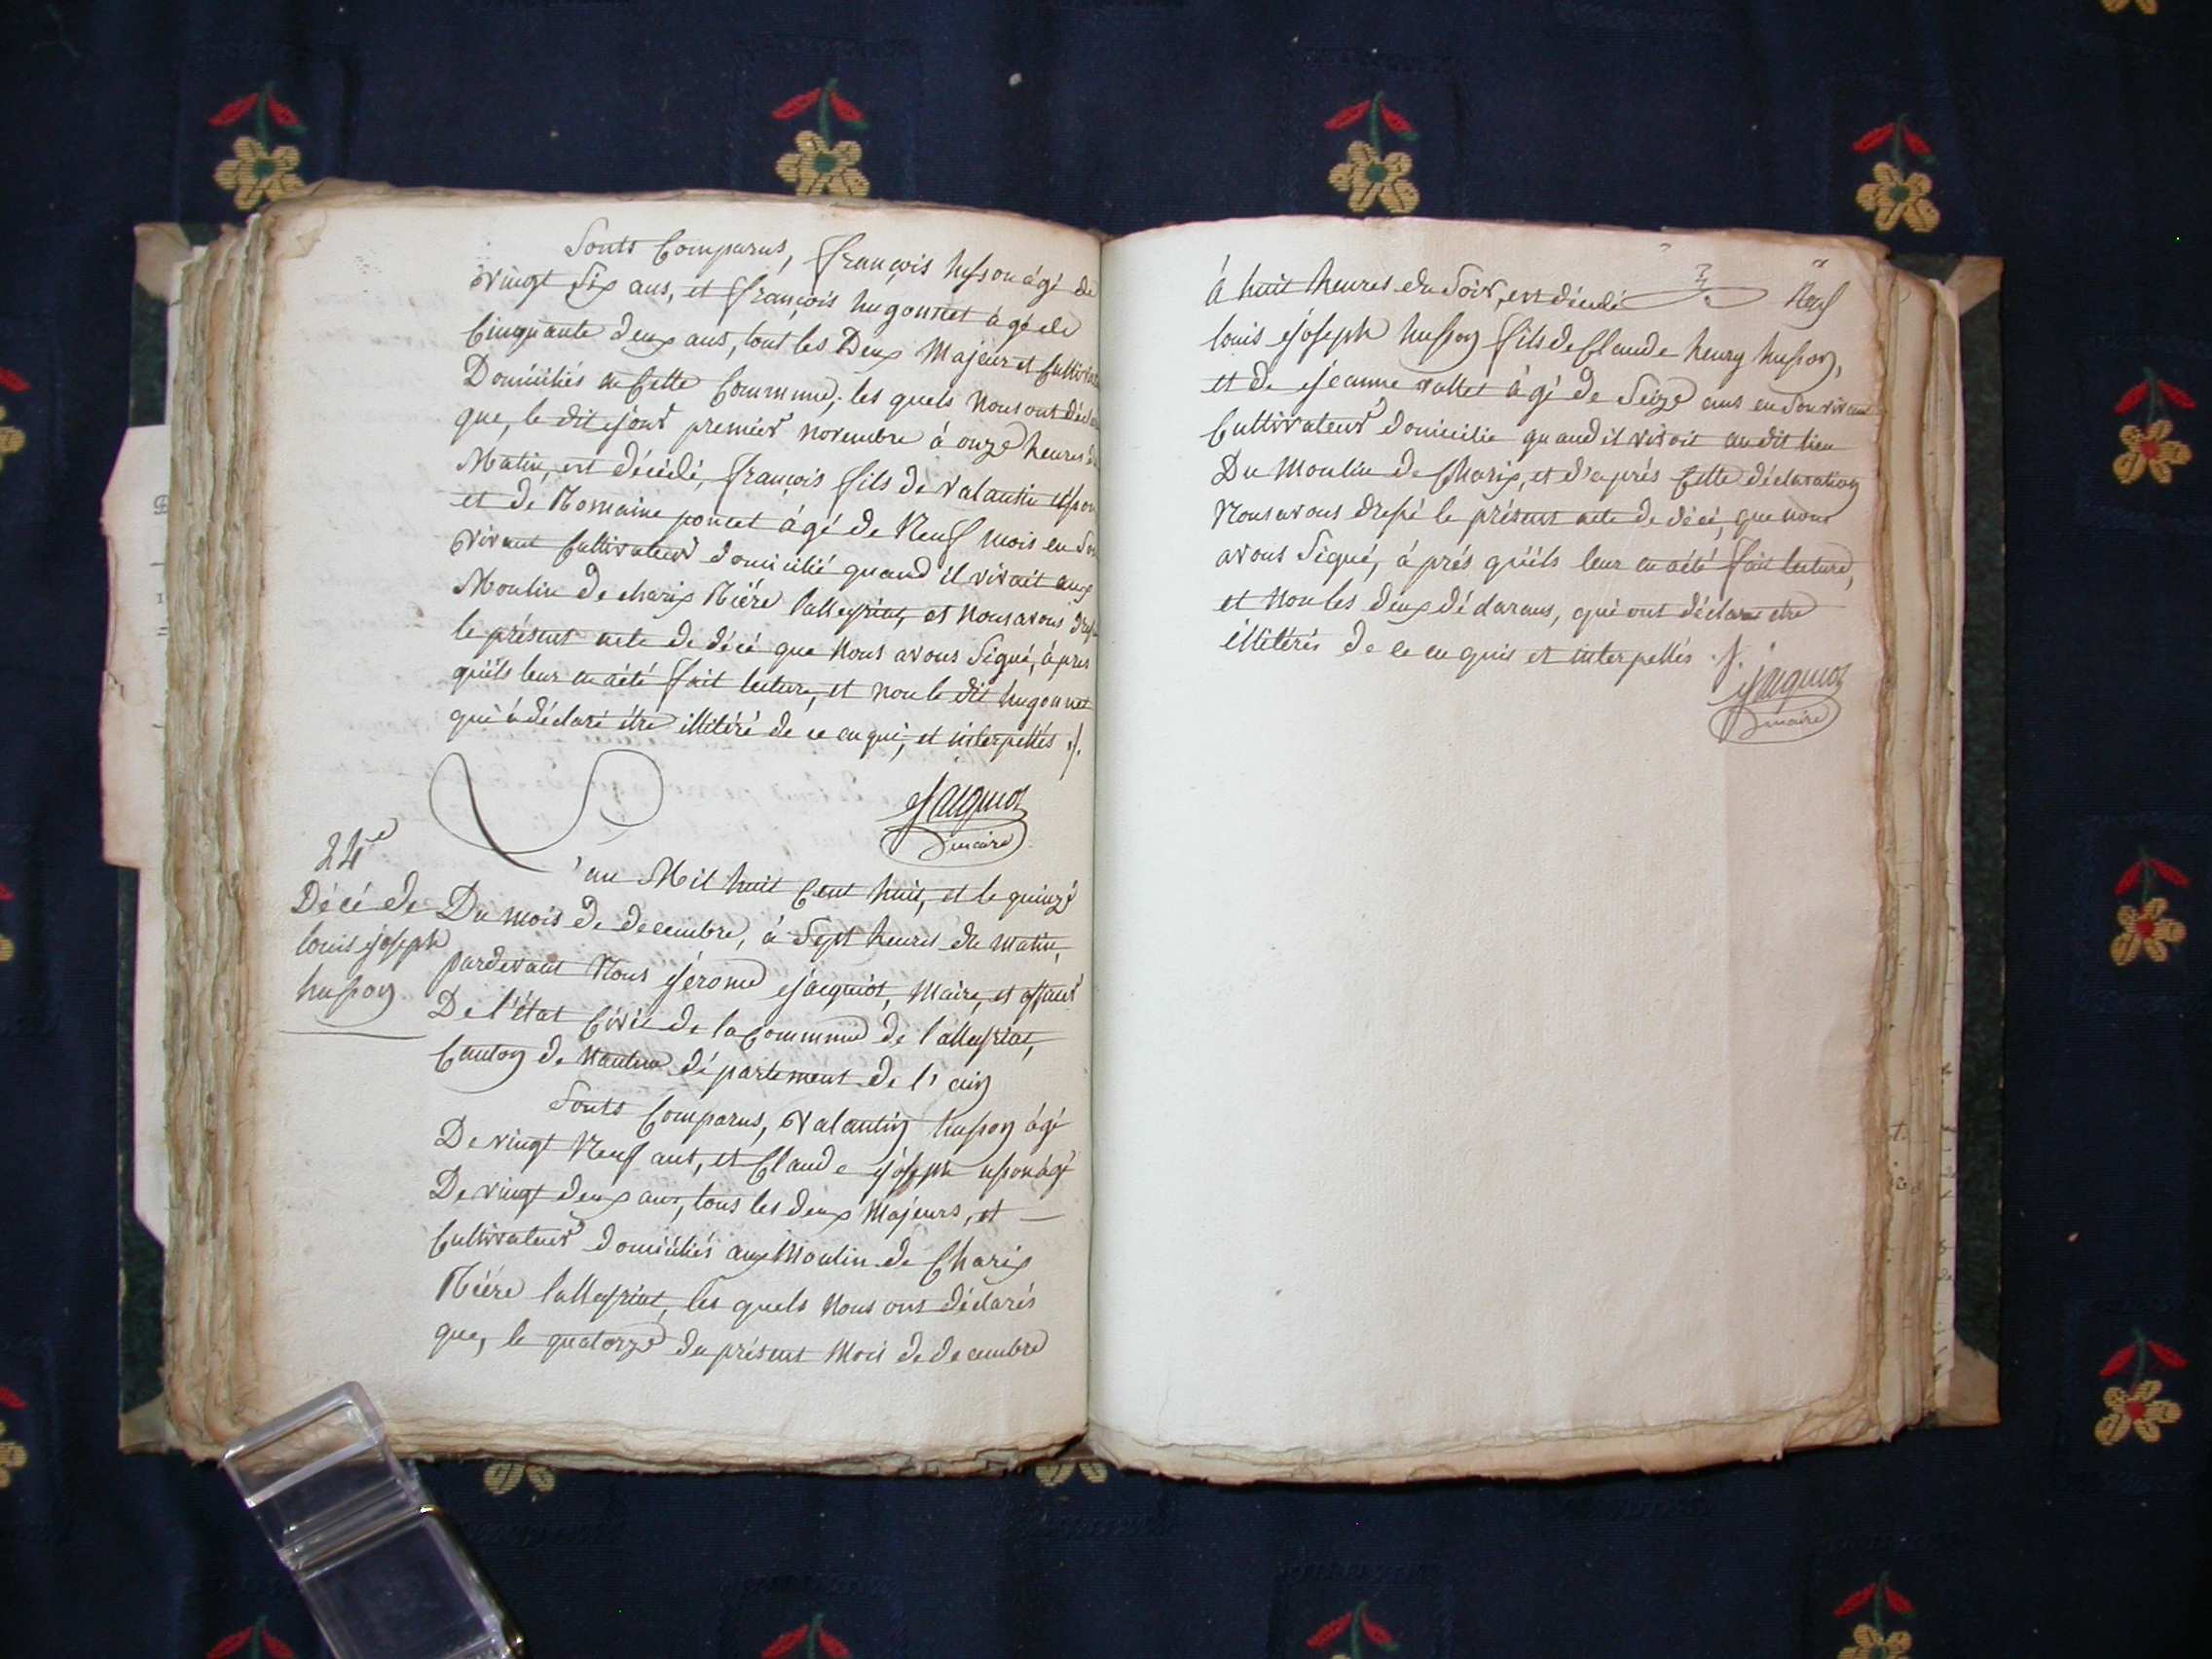 Sonts Comparus, François husson âgé de
vingt Six ans, et François hugonnet âgé de
Cinquante deux ans, tout les Deux Majeur et Cultivat
Domicilies en Cette Commune, les quels Nous ont décl
que, le dit jour premier novembre à onze heures d
Matin, est décédé, François fils de Valantin usson
et de Romaine poncet âgé de Neuf mois en Son
vivant Cultivateur domicilié quand il vivait aux
Moulin de charix Rière lalleyriat, et Nous avons dres
le présent acte de décé que Nous avons Signé, à près
qu'ils leur en a été fait lecture, et non le dit hugonnet
qui à déclaré être illitéré de ce en qui, et interpellés ./.
Jacquiot
maire
24e
Décé de
louis joseph
husson
L'an Mil huit Cent huit, et le quinze
Du mois de decembre, à Sept heures du matin,
pardevant Nous jérome jacquiot, Maire, et
De l'état Civil de la Commune de lalleyriat,
Canton de Nantua département de l'ain
Sonts Comparus, Valantin husson âgé
De vingt Neuf ans, et Claude joseph usson âgé
De vingt deux ans, tous les deux Majeurs, et —
Cultivateur domiciliés aux Moulin de Charix
Rière lalleyriat, les quels Nous ont déclarés
que, le quatorze du présent Mois de decembre
Neuf
à huit heures du Soir, est décédé
louis joseph husson fils de Claude henry husson,
et de jeanne vallet âgé de Seize ans en Son vivant
Cultivateur domicilié quand il vivoit au dit lieu
Du Moulin de Charix, et d'après Cette déclaration
Nous avons dressé le présent acte de décé, que nous
avons Signé, à près qu'ils leur en a été fait lecture,
et Non les deux déclarans, qui ont déclaré etre
illitérés de ce en quis et interpellés ./.
Jacquiot
maire